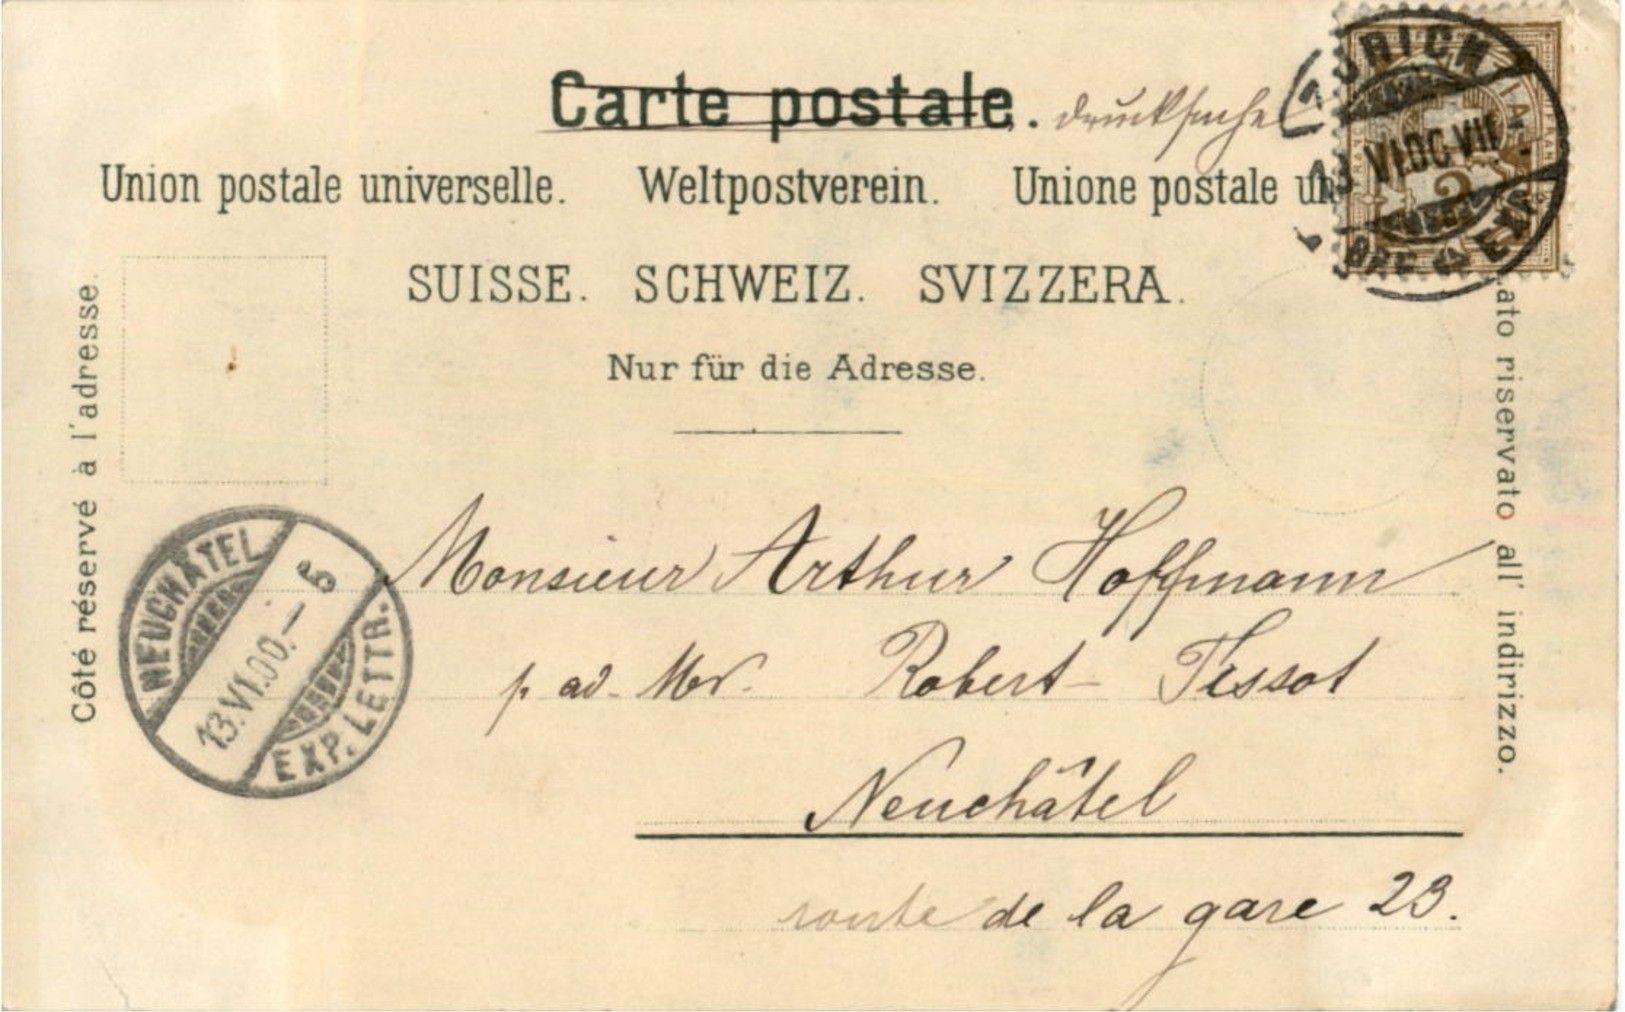 Carte postale. Drucksache
Union postale universelle. Weltpostverein. Unione postale un
SUISSE. SCHWEIZ. SVIZZERA.
Nur für die Adresse.
Côté réservé à l'adresse.
ato riservato all' indirizzo.
2
NEUCHÂTEL
13.VI.00.–
EXP. LETTR.
Monsieur Arthur Hoffmann
p. ad. Mr. Robert Tissot
Neuchâtel
route de la gare 23.